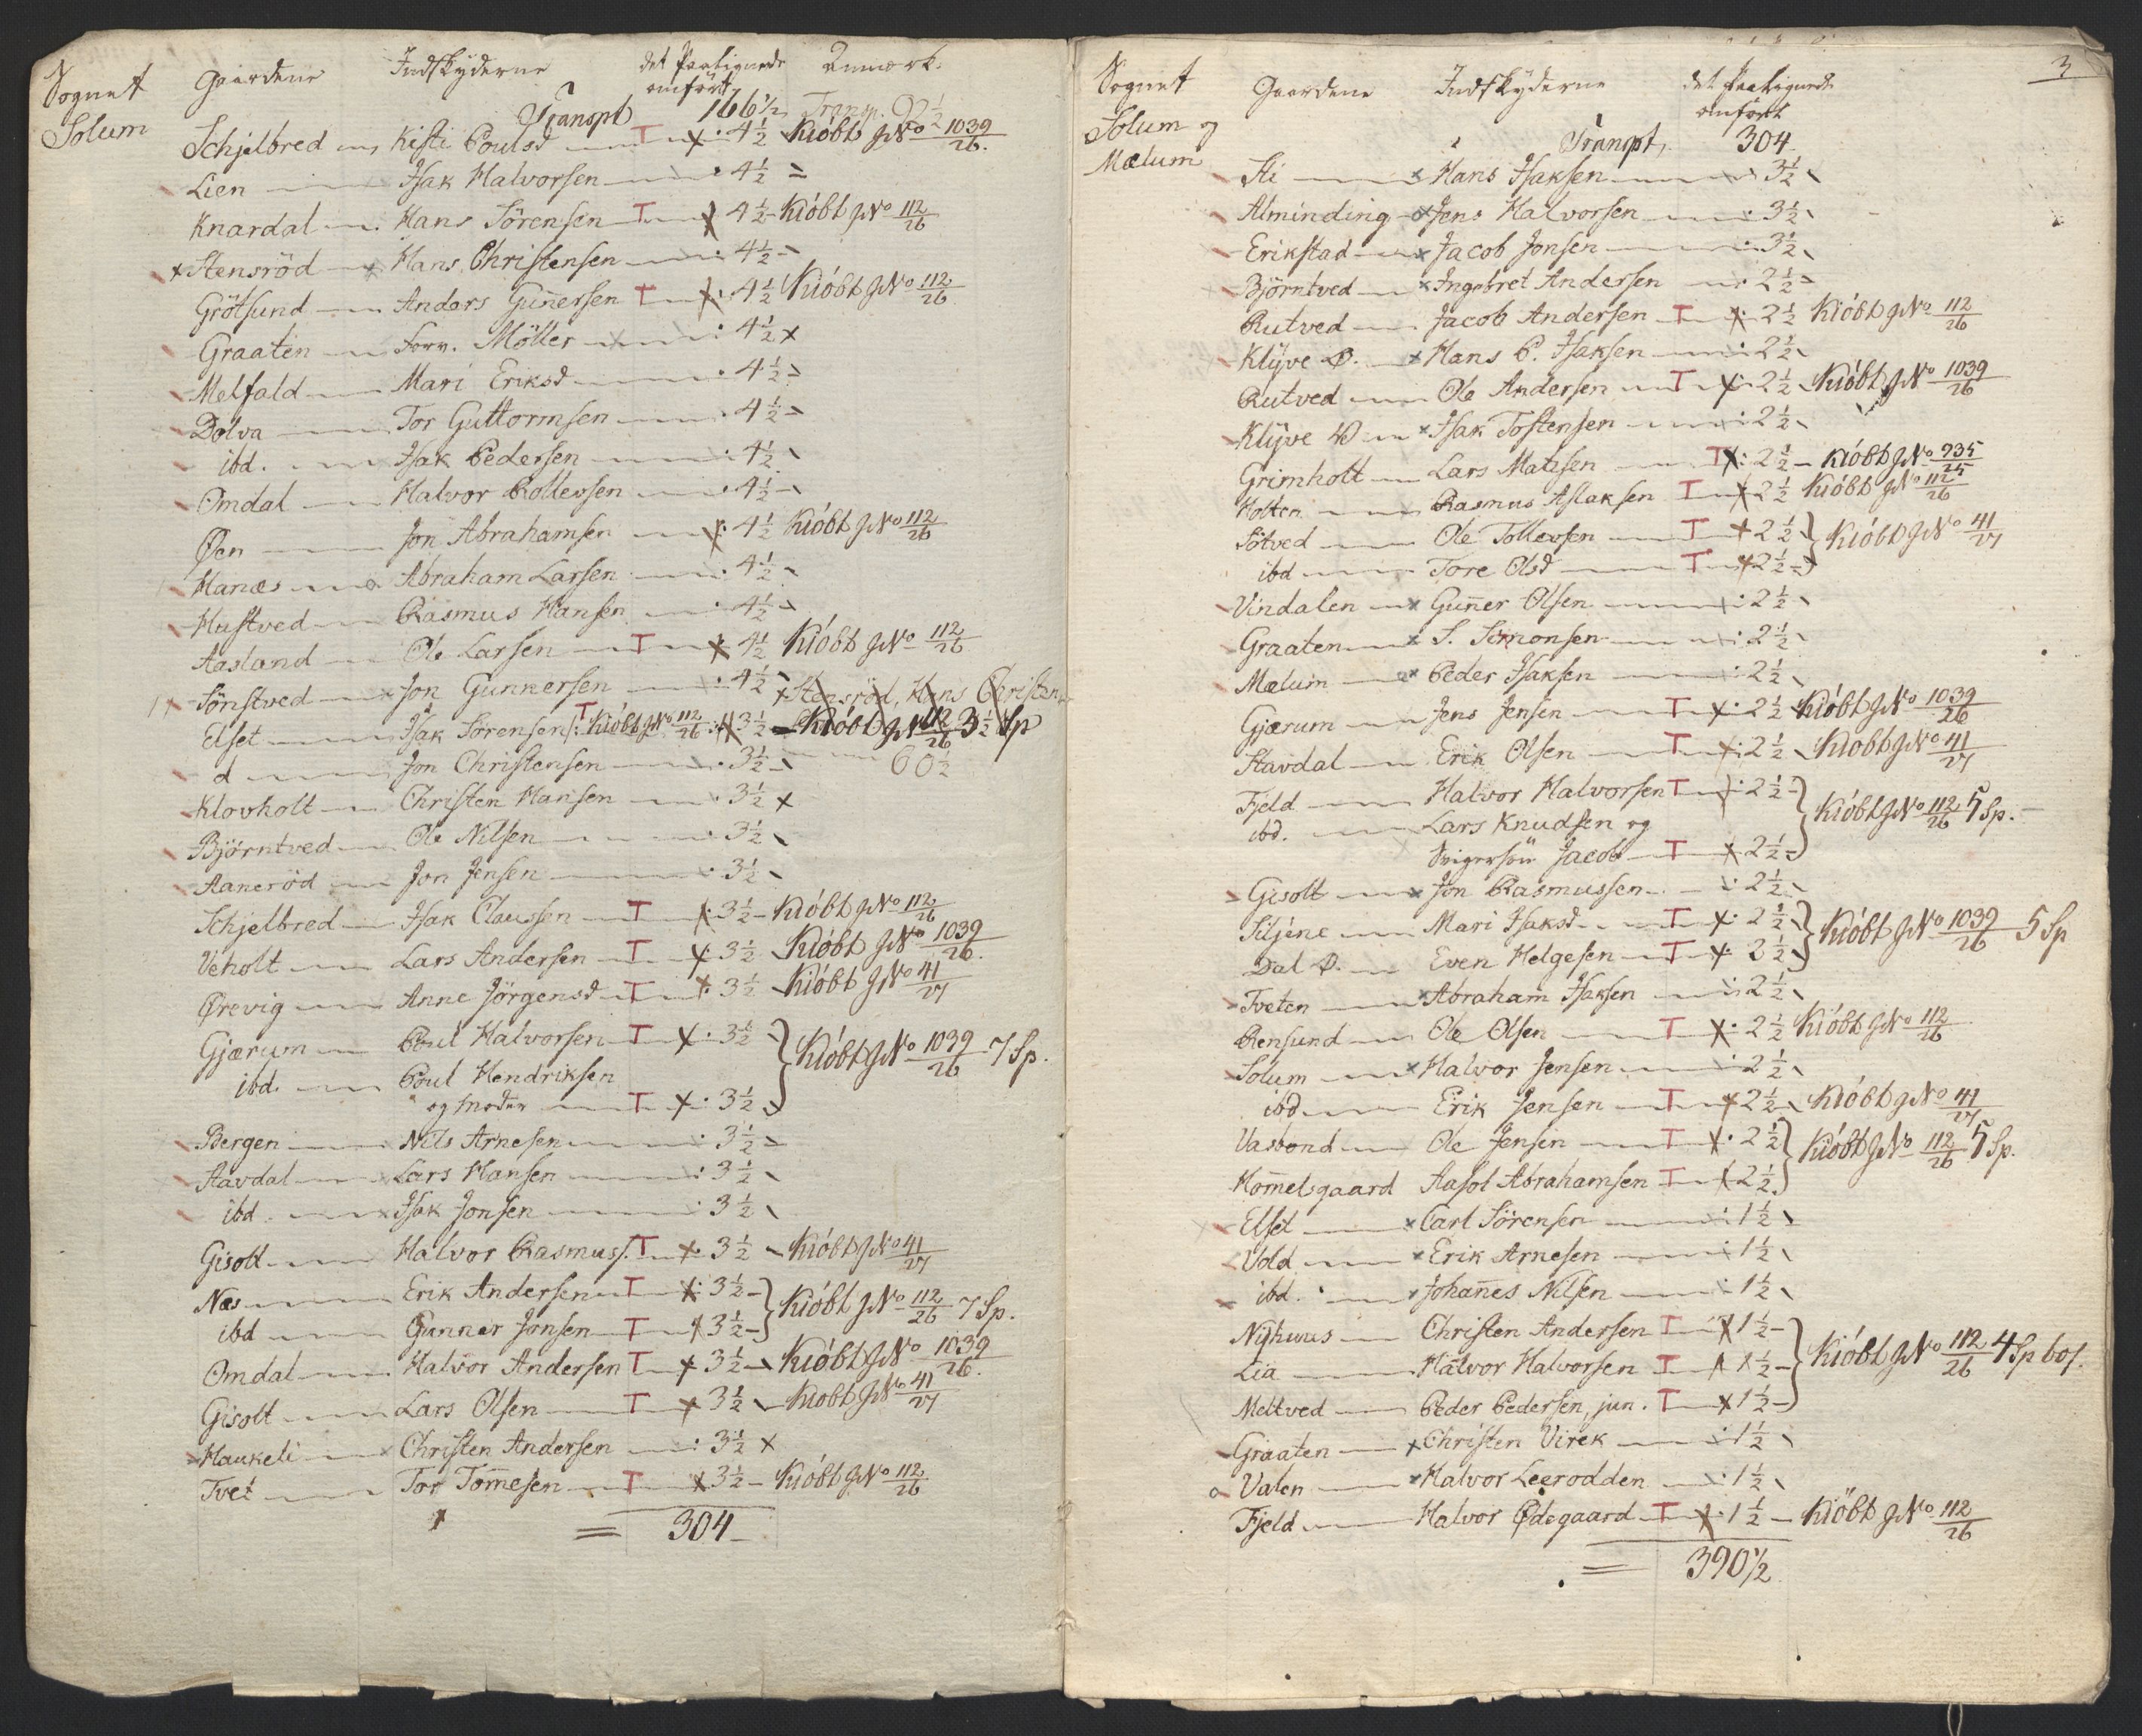 Sognet Gaardene Indskyderne det Paalignede Anmærk.
Solum omført
Transpt 166½ Transp. 92½
Schjelbred Kisti Poulsd T 4½ Kiöbt JNo 1039/26.
Lien Isak Halvorsen 4½
Knardal Hans Sörensen T 4½ Kiöbt JNo 112/26
x Stensröd Hans Christensen 4½
Grötsund Anders Gun̄ersen T 4½ Kiöbt JNo 112/26
Graaten Forv. Möller 4½ x
Melfald Mari Eriksd 4½
Dolva Tor Guttormsen 4½
ibd. Isak Pedersen 4½
Omdal Halvor Rollevsen 4½
Øen Jon Abrahamsen 4½ Kiöbt JNo 112/26
Hanæs Abraham Larsen 4½
Hustved Rasmus Hansen 4½
Aasland Ole Larsen T 4½ Kiöbt JNo 112/26
Sönstved Jon Gunnersen 4½ x Stensröd, Hans Christen
Elset Isak Sörensen T Kiöbt JNo 112/26 3½ Kiöbt JNo 112/26 3½ Sp
d Jon Christensen 3½ 60½
Klovholt Christen Hansen 3½ x
Björntved Ole Nilsen 3½
Aaneröd Jon Jensen 3½
Schjelbred Isak Claussen T 3½ Kiöbt JNo 112/26
Veholt Lars Andersen T 3½ Kiöbt JNo 1039/26.
Ørevig Anne Jörgensd T 3½ Kiöbt JNo 41/27
Gjærum Poul Halvorsen T 3½
ibd. Poul Hendriksen Kiöbt JNo 1039/26 7 Sp.
og moder T 3½
Bergen Nils Arnesen 3½
Stavdal Lars Hansen 3½
ibd. Isak Jonsen 3½
Gisolt Halvor Rasmuss. T 3½ Kiöbt JNo 41/27
Næs Erik Andersen T 3½
ibd Gunner Jonsen T 3½ Kiöbt JNo 112/26 7 Sp.
Omdal Halvor Andersen T 3½ Kiöbt JNo 1039/26.
Gisolt Lars Olsen T 3½ Kiöbt JNo 41/27
Haukeli Christen Andersen 3½ x
Tvet Tor Tom̄esen T 3½ Kiöbt JNo 112/26
= 304
3
Sognet Gaardene Indskyderne det Paalignede
Solum og omført
Mælum Transpt, 304
Sti Hans Isaksen 3½
Alminding Jens Halvorsen 3½
Erikstad Jacob Jonsen 3½
Björntved Ingebret Andersen 2½
Rutved Jacob Andersen T 2½ Kiöbt JNo 112/26
Klÿve Ø. Hans P. Isaksen 2½
Rutved Ole Andersen T 2½ Kiöbt JNo 1039/26
Klÿve V Isak Tostensen 2½
Grimholt Lars Matisen T 2½ Kiöbt JNo 935/25
Holten Rasmus Aslaksen T 2½ Kiöbt JNo 112/26
Sötved Ole Tollevsen T 2½
ibd Tore Olsd T 2½ Kiöbt JNo 41/27
Vindalen Gun̄er Olsen 2½
Graaten S. Simonsen 2½
Mælum Peder Isaksen 2½
Gjærum Jens Jensen T 2½ Kiöbt JNo 1039/26
Stavdal Erik Olsen T 2½ Kiöbt JNo 41/27
Fjeld Halvor Halvorsen T 2½
ibd. Lars Knudsen og Kiöbt JNo 112/26 5 Sp.
Svigersön Jacob T 2½
Gisolt Jon Rasmussen 2½
Siljene Mari Isaksd T 2½
Dal Ø. Even Helgesen T 2½ Kiöbt JNo 1039/26 5 Sp
Tveten Abraham Isaksen 2½
Rensund Ole Olsen T 2½ Kiöbt JNo 112/26
Solum Halvor Jensen 2½
ibd Erik Jensen T 2½ Kiöbt JNo 41/27
Vasbond Ole Jensen T 2½
Hom̄elsgaard Aasol Abrahamsen T 2½ Kiöbt JNo 112/26 5 Sp.
Elset Carl Sörensen 1½
Vold Erik Arnesen 1½
ibd. Johan̄es Nilsen 1½
Nÿhuus Christen Andersen T 1½
Lia Halvor Halvorsen T 1½ Kiöbt JNo 112/26 4 Sp 60 s.
Meltved Peder Pedersen, jun. T 1½
Graaten Christen Virek 1½
Valen Halvor Leerodden 1½
Fjeld Halvor Ødegaard T 1½ Kiöbt JNo 112/26
= 390½